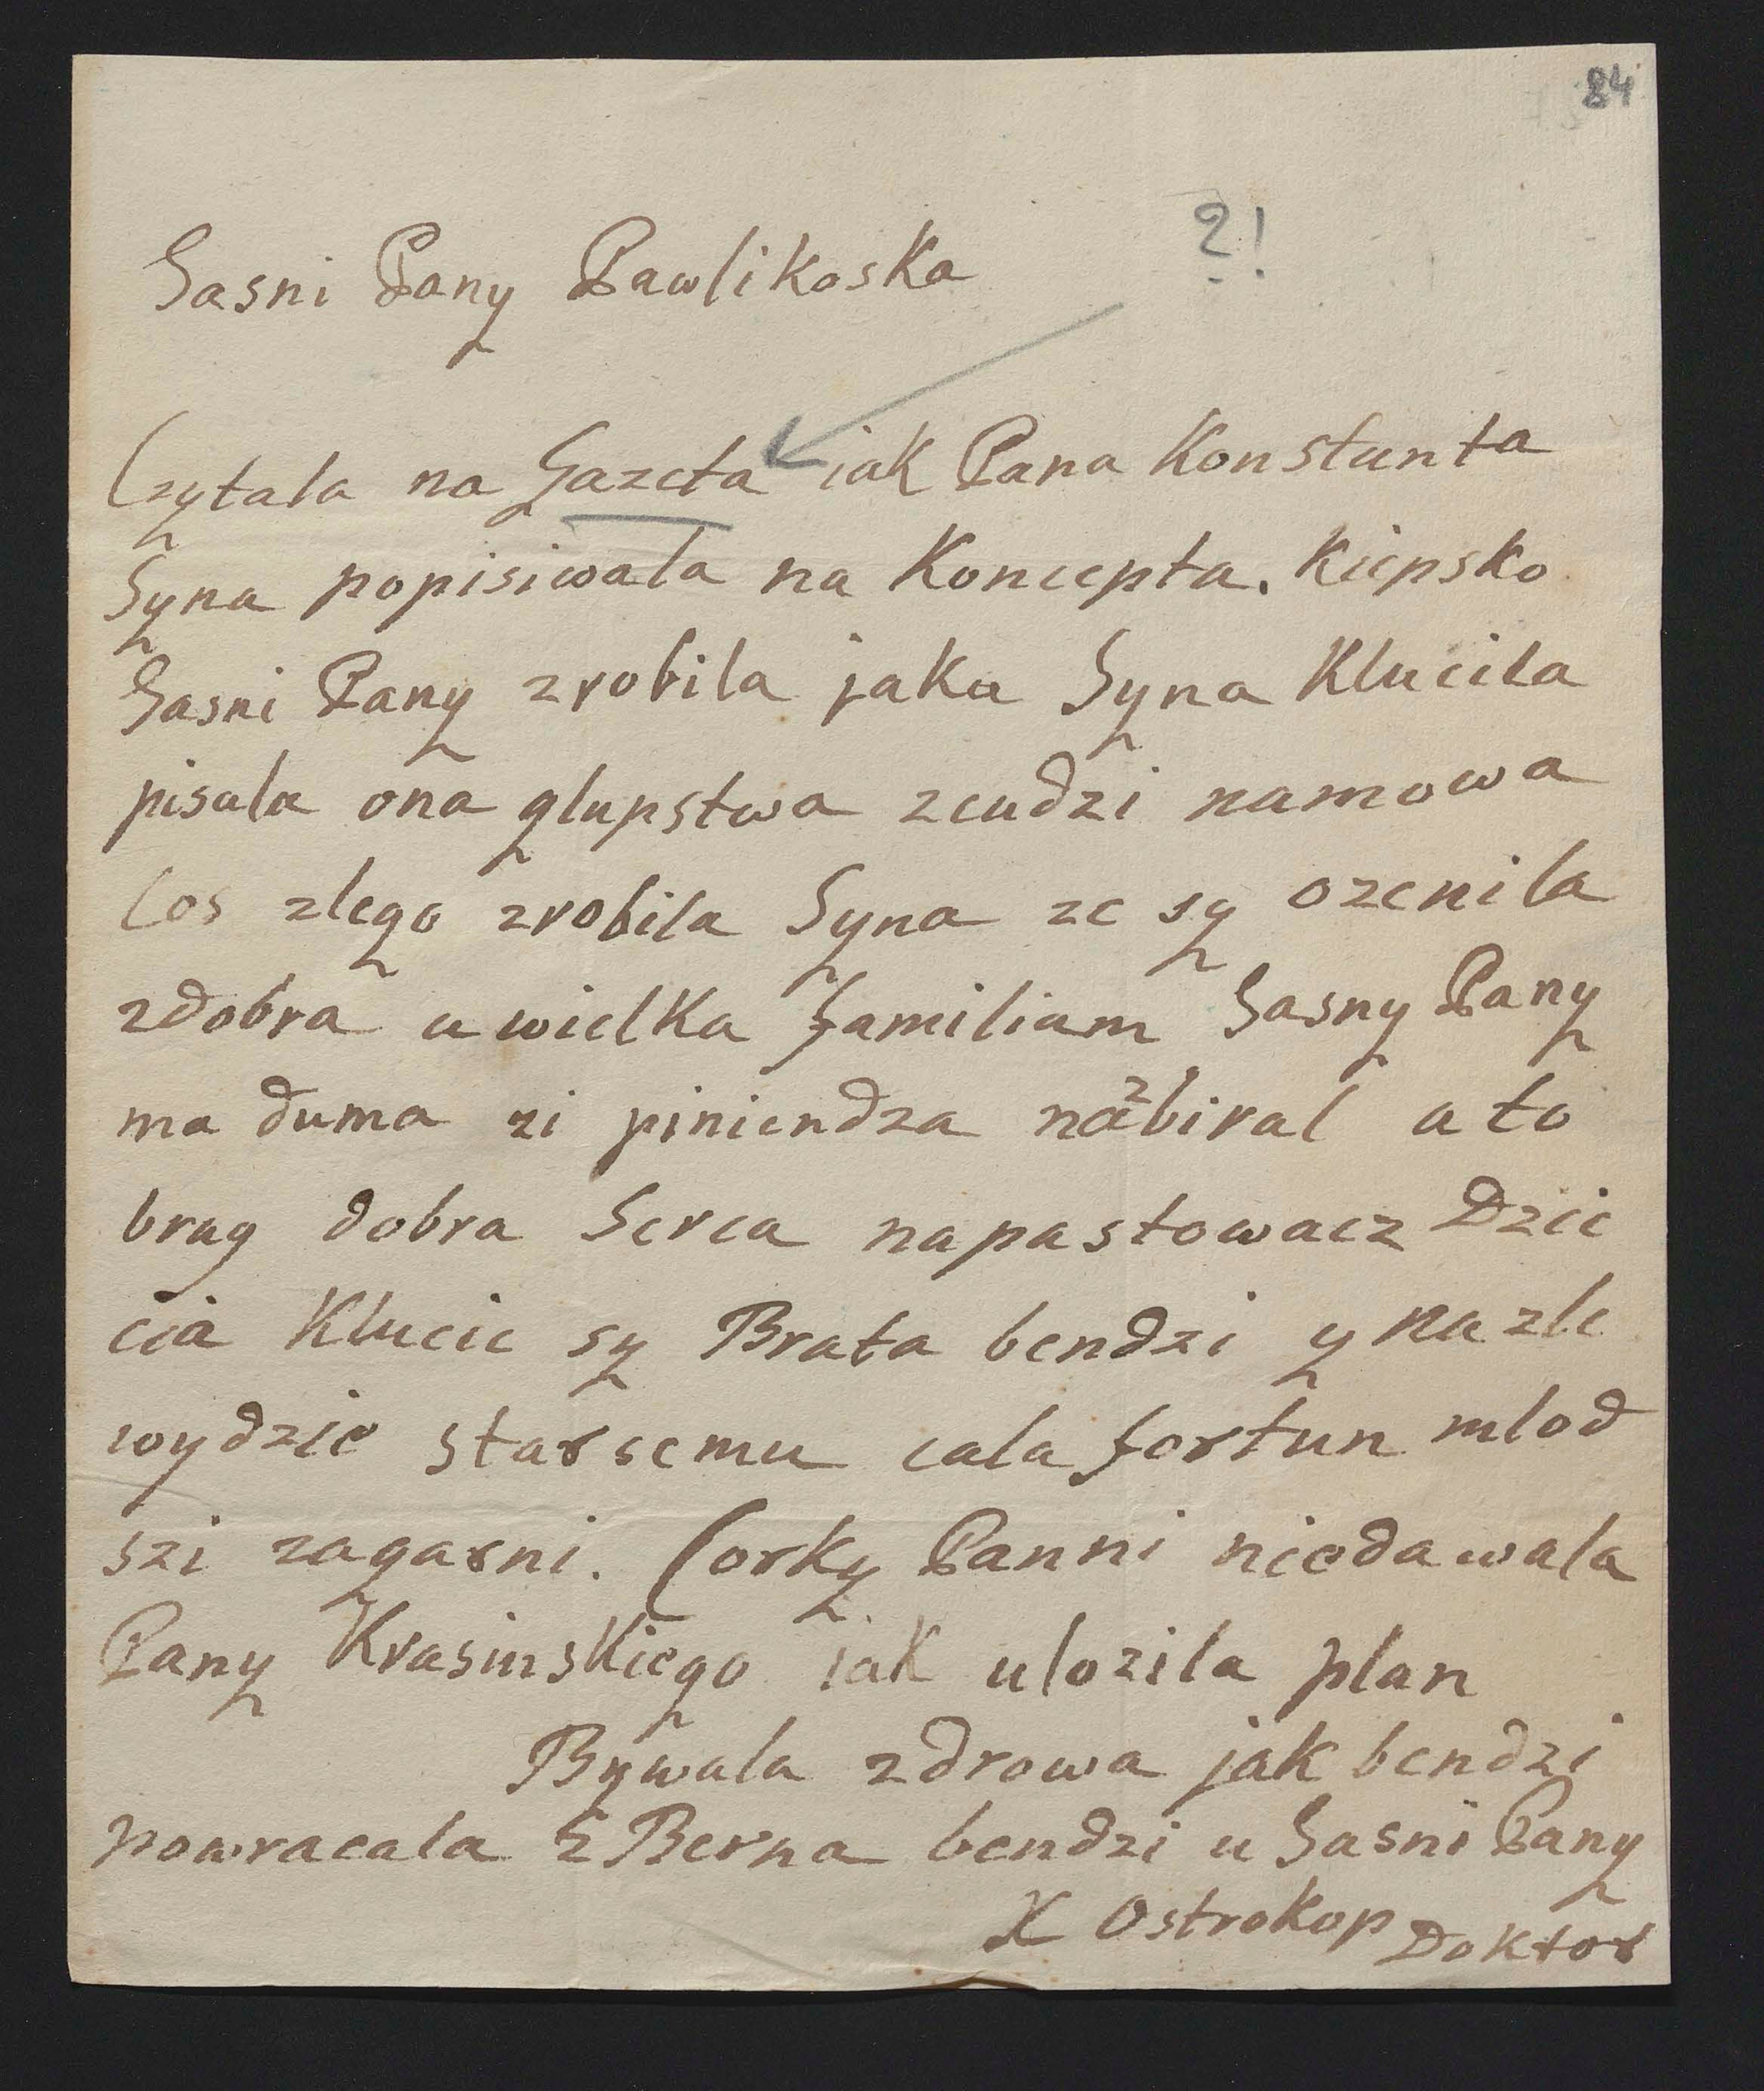 84
?!
Jasni Pany Pawlikoska
Czytala na Gazeta iak Pana Konstanta
Syna popisiwala na Koncepta. Kiepsko
Jasni Pany zrobila jaka Syna Klucila
pisala ona glupstwa zcudzi namowa
Cos zlego zrobila Syna ze sy ozenila
zdobra a wielka familiam Jasny Pany
ma duma zi piniendza nazbiral a to
brag dobra Serca napastowacz Dzie
cia Klucic sy Brata bendzi y na zle
wydzie starsemu cala fortun mlod
szi zagarni. Corky Panni niedawala
Pany Krasinskiego iak ulozila plan
Bywala zdrowa jak bendzi
powracala z Berna bendzi u Jasni Pany
X Ostrokop Doktor